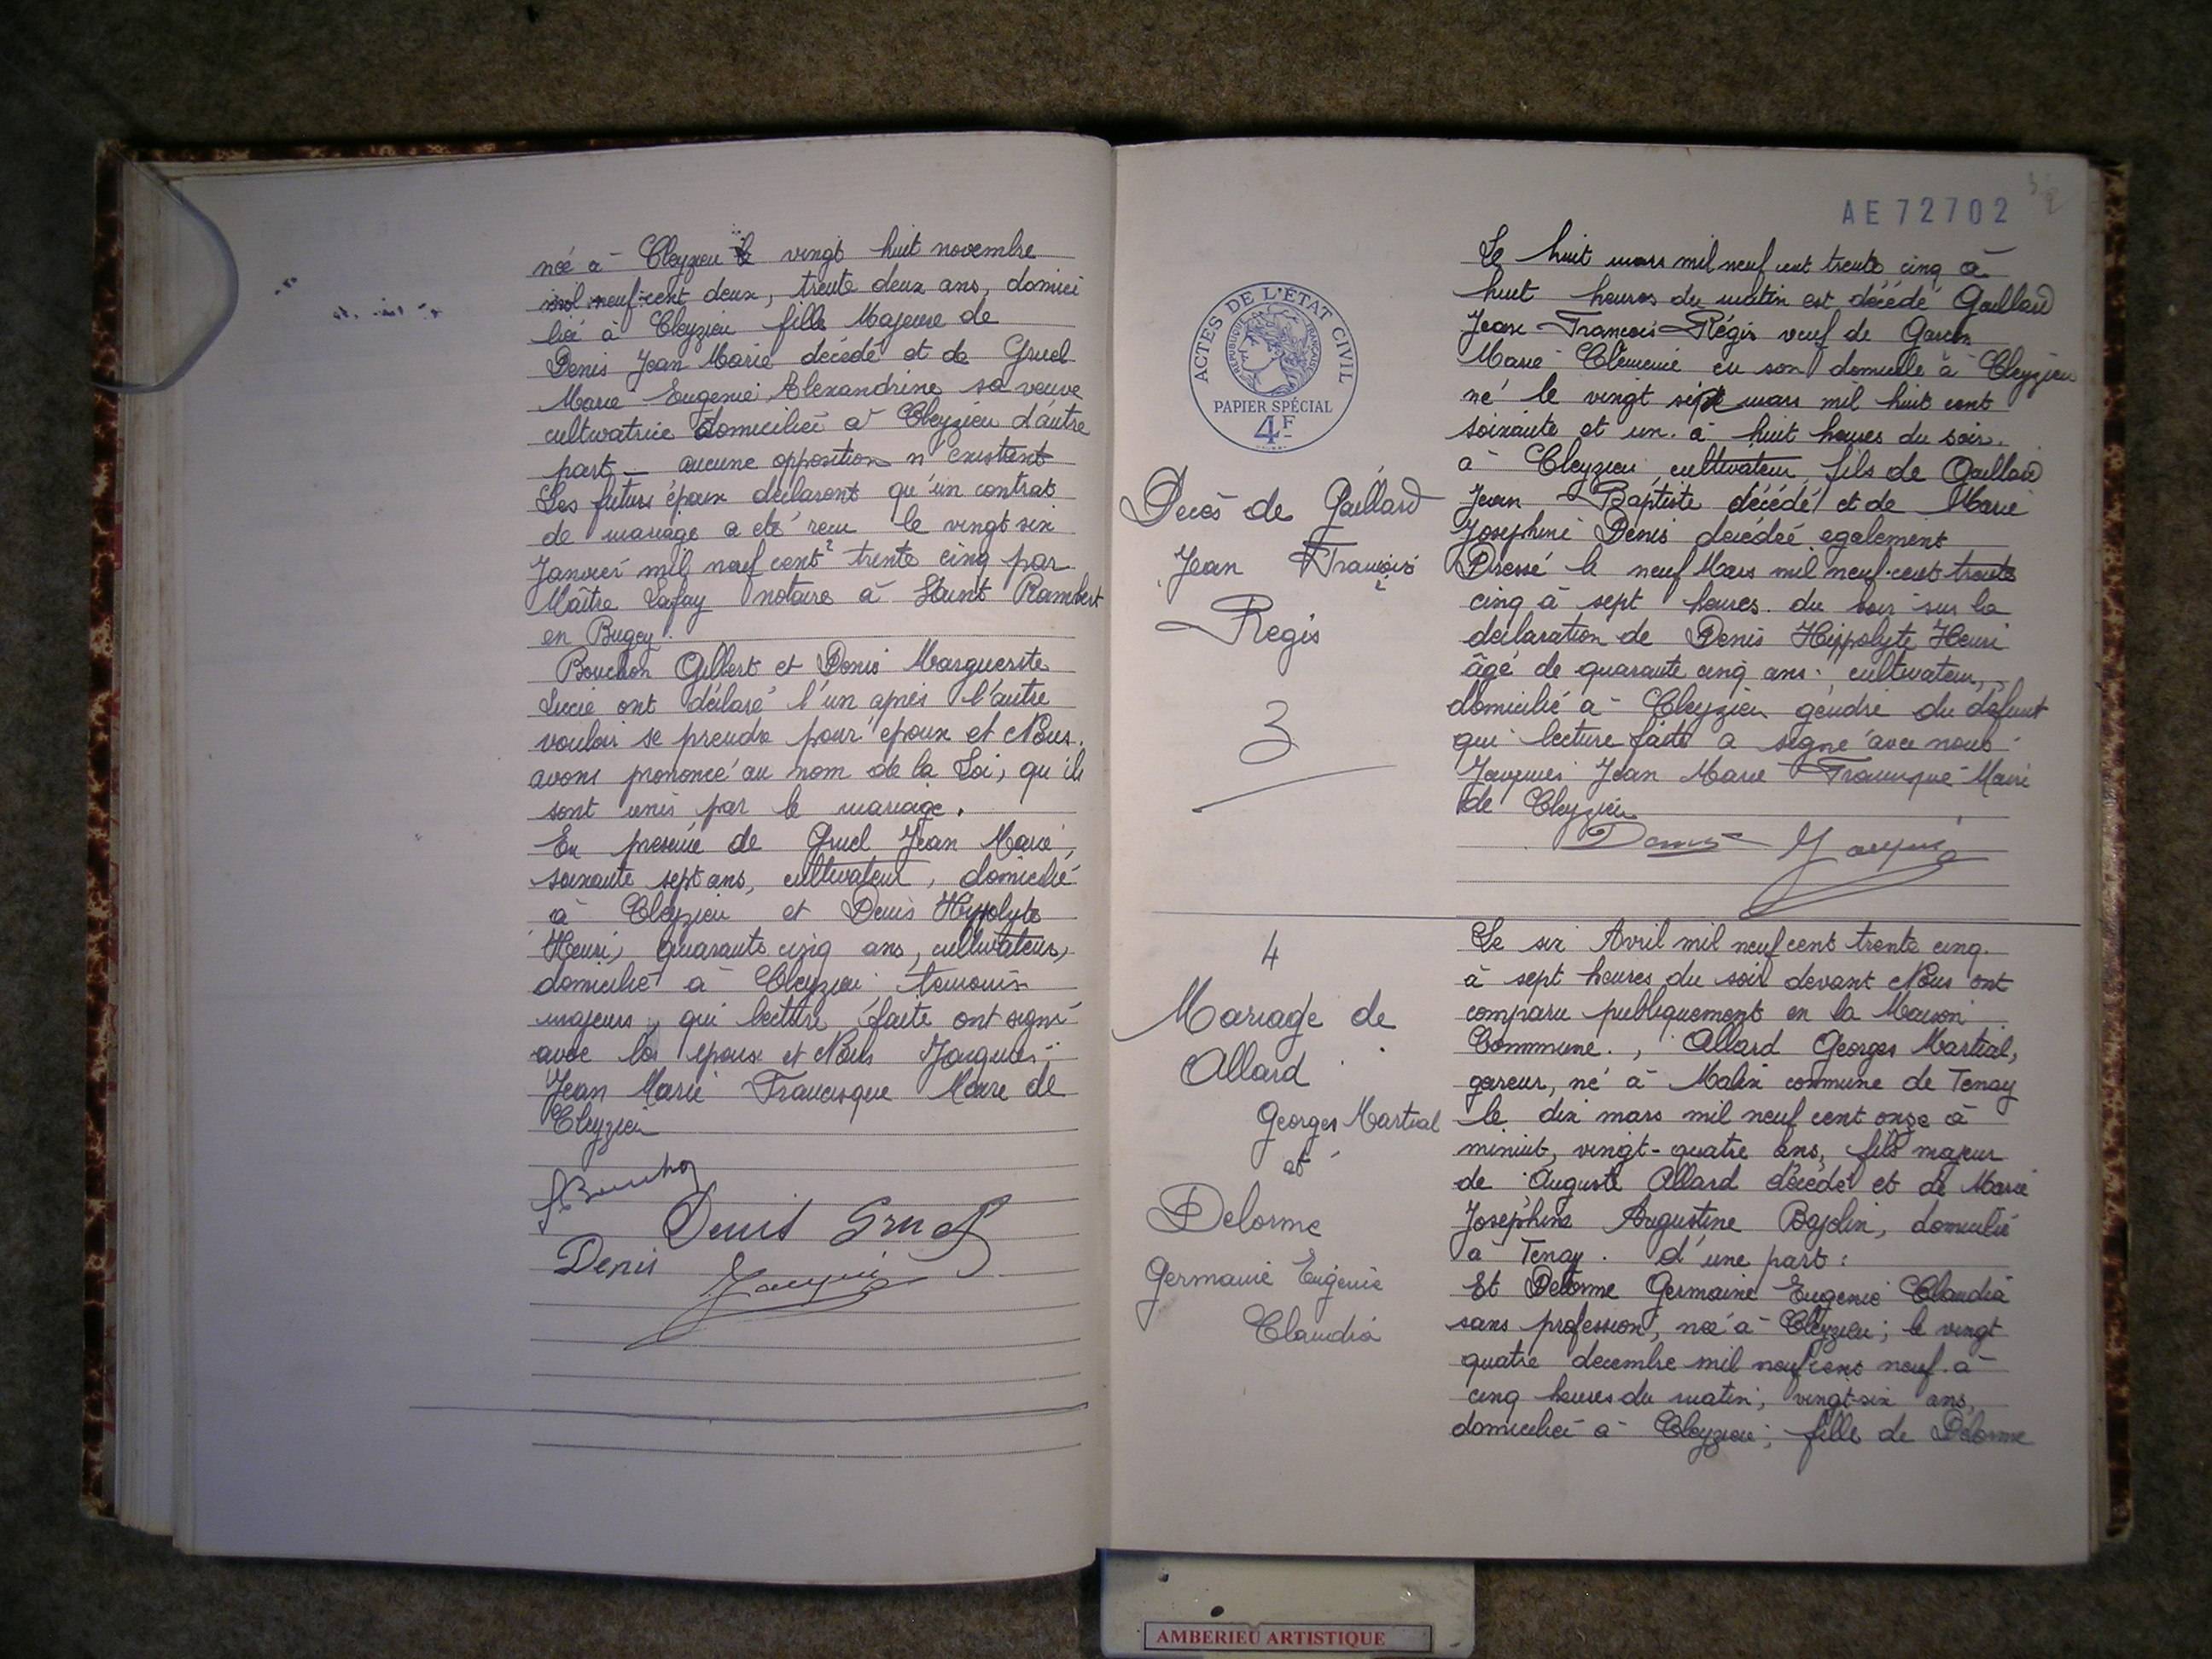 née à Cleyzieu le vingt huit novembre
mil neuf-cent deux, trente deux ans, domici
liée à Cleyzieu fille Majeure de
Denis Jean Marie décédé et de Gruel
Marie Eugenie Alexandrine sa veuve
cultivatrice domiciliée à Cleyzieu d'autre
part – aucune opposition n'existant
Les futurs époux déclarent qu'un contrat
de mariage a été recu le vingt six
Janvier mil neuf cent trente cinq par
Maître Lafay notaire à Saint Rambert
en Bugey.
Bouchon Gilbert et Denis Marguerite
Lucie ont déclaré l'un après l'autre
vouloir se prendre pour époux et Nous
avons prononcé au nom de la Loi, qu'ils
sont unis par le mariage.
En présence de Gruel Jean Marie,
soixante sept ans, cultivateur, domicilié
à Cleyzieu et Denis Hippolyte
Henri, quarante cinq ans, cultivateur,
domicilié à Cleyzieu témoins
majeurs, qui lecture faite ont signé
avec les époux et Nous Jacquier
Jean Marie Francisque Maire de
Cleyzieu
Bouchon
Denis Gruel
Denis
AE 72702
ACTES DE L'ÉTAT CIVIL
RÉPUBLIQUE FRANÇAISE
PAPIER SPÉCIAL
4F
Décès de Gaillard
Jean François
Regis
3
Le huit mars mil neuf cent trente cinq à
huit heures du matin est décédé Gaillard
Jean-François-Régis veuf de
Marie en son domicile à Cleyzieu
né le vingt sept mars mil huit cent
soixante et un à huit heures du soir.
à Cleyzieu, cultivateur, fils de Gaillard
Jean Baptiste décédé et de Marie
Joséphine Denis décédée egalement
Dressé le neuf Mars mil neuf-cent trente
cinq à sept heures du soir sur la
déclaration de Denis Hippolyte Henri
âgé de quarante cinq ans, cultivateur,
domicilié à Cleyzieu gendre du défunt
qui lecture faite a signé avec nous
Jacquier Jean Marie Francisque Maire
de Cleyzieu
Denis
4
Mariage de
Allard
Georges Martial
et
Delorme
Germaine Eugénie
Claudia
Le six Avril mil neuf cent trente cinq.
à sept heures du soir devant Nous ont
comparu publiquement en la Maison
Commune., Allard Georges Martial,
gareur, né à Malix commune de Tenay
le dix mars mil neuf cent onze à
minuit, vingt-quatre ans, fils majeur
de Auguste Allard décédé et de Marie
Joséphine Augustine Bajolin, domicilié
à Tenay. d'une part:
Et Delorme Germaine Eugenie Claudia
sans profession, née à Cleyzieu; le vingt
quatre decembre mil neuf cent neuf. à
cinq heures du matin; vingt-six ans,
domiciliée à Cleyzieu; fille de Delorme
AMBERIEU ARTISTIQUE